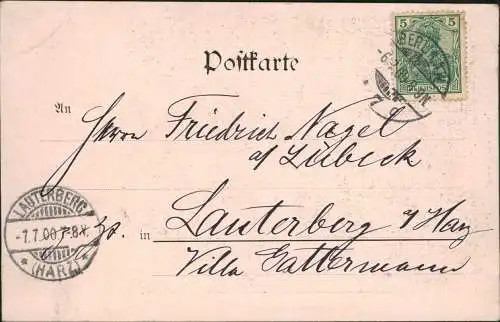 5 5
BERLIN
Postkarte
An
Herrn Friedrich Nagel
a/ Lübeck
LAUTERBERG
-7.7.00 7-8.V.
* (HARZ) *
in Lauterberg a/ Harz
Villa Gattermann